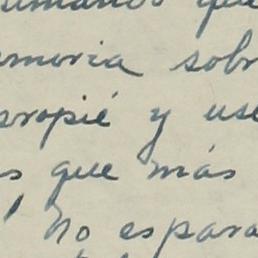 umanos que
emoria sobr
aropié y use
s que más
no espara